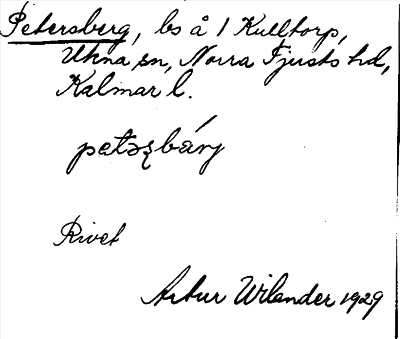 Petersberg, bs å 1 Kulltorp,
Ukna sn, Norra Tjusts hd,
Kalmar l.
petəʂbárj
Rivet
Artur Wilander 1929